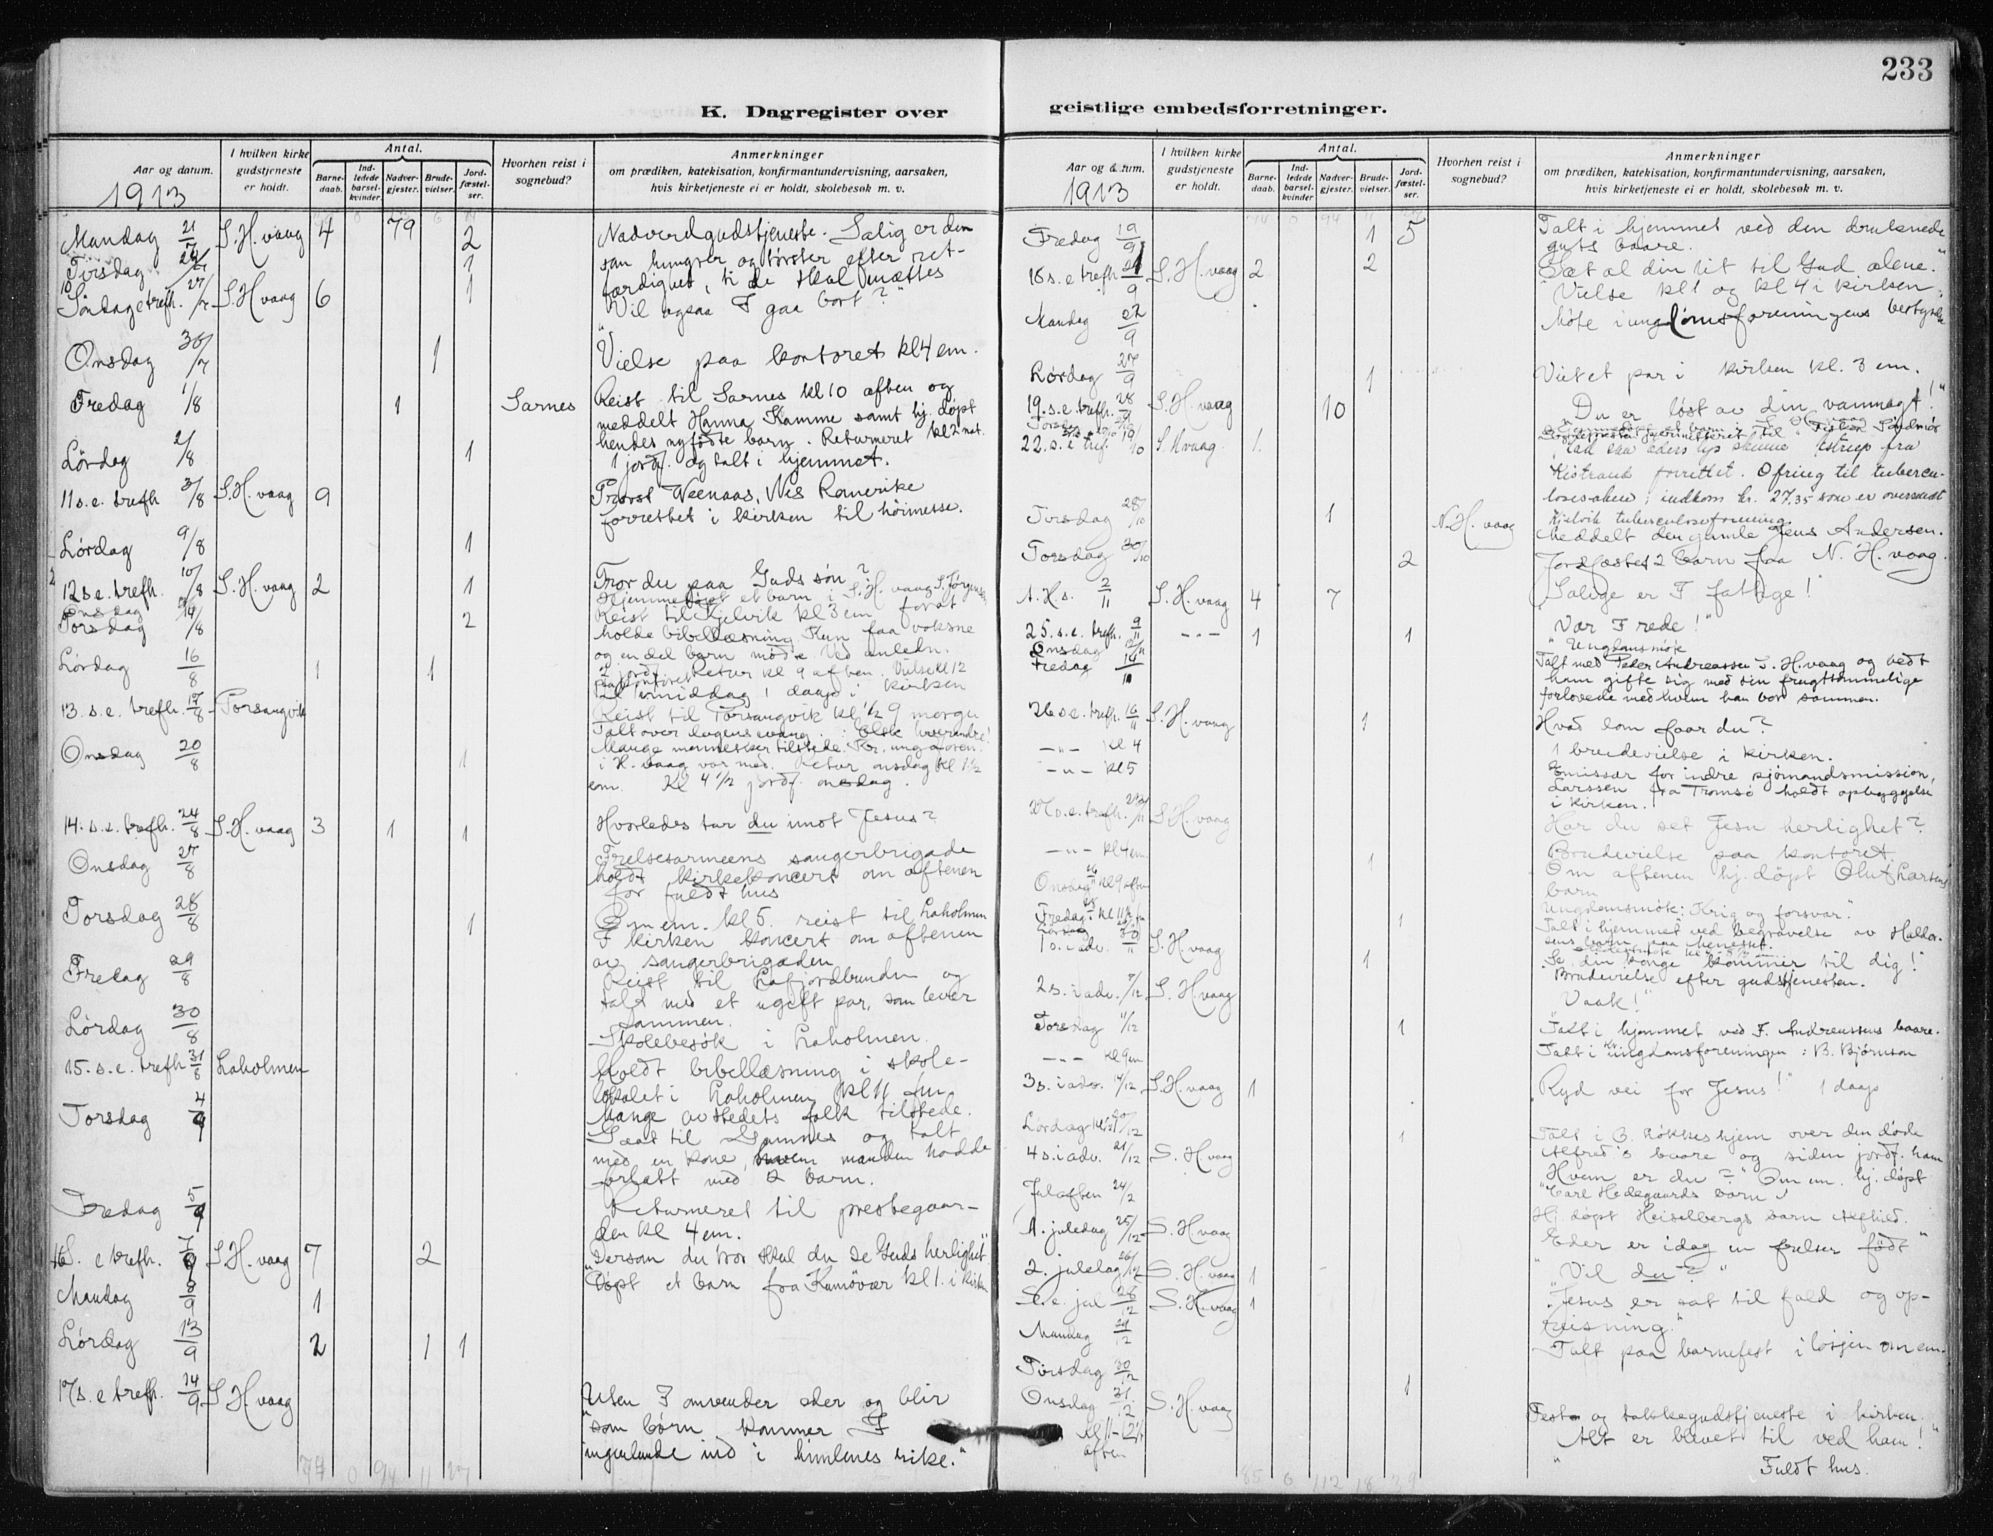 233
K. Dagregister over
geistlige embedsforretninger.
Aar og datum.
1913
I hvilken kirke gudstjeneste er holdt.
Antal.
Barnedaab.
Indledede barselkvinder
Nadvergjester.
Brudevielser.
Jordfæstelser.
Hvorhen reist i sognebud?
Anmerkninger
om prædiken, katekisation, konfirmantundervisning, aarsaken,
hvis kirketjeneste ei er holdt, skolebesøk m. v.
Mandag 21/7 S. H. vaag 4 79 2 Nadverdgudstjeneste. Salig er den
Tirsdag 1 som hungrer og tørster efter ret-
10 Søndag e trefh. 27/7 S. H. vaag 6 1 færdighet, ti de skal mættes
"Vil ogsaa I gaa bort?"
Onsdag 30/7 1 Vielse paa kontoret kl 4 em.
Fredag 1/8 1 Sarnes Reist til Sarnes kl 10 aften og
meddelt Hanna Kamme samt hj. døpt
hendes nyfødte barn. Returneret kl 2 nat.
Lørdag 2/8 1 1 jordf. og talt i hjemmet.
11 s. e. trefh 3/8 S. H. vaag 9 Provst Weenaas, Nes Romerike
forrettet i kirken til høimesse.
Lørdag 9/8 1
12 s. e. trefh. 10/8 S. H. vaag 2 1 Tror du paa Guds søn?
Hjemmedøpt et barn i S. H. vaag S. Jørgensen
Torsdag 14/8 2 Reist til Kjelvik kl 3 em forat
holde bibellæsning Kun faa voksne
og en del barn mødte. Ved anledn.
Lørdag 16/8 1 1 2 jordf. Retur kl 9 aften. Vielse kl 12
paa kontoret
middag 1 daap i kirken
13. s. e. trefh. 17/8 Porsangvik Reist til Porsangvik kl ½ 9 morgen
Talt over dagens evang.: Elsk hverandre!
Mange mennesker tilstede. Kr. ungd.foren.
Onsdag 20/8 1 i H. vaag var med. Retur onsdag kl 1½
em. Kl 4½ jordf. onsdag.
14. s. e. trefh. 24/8 S. H. vaag 3 1 1 Hvorledes tar du imot Jesus?
Onsdag 27/8 Frelsesarmeens sangerbrigade
holdt kirkekoncert om aftenen
for fuldt hus
Torsdag 28/8 1 Om em. kl 5. reist til Laholmen
I kirken koncert om aftenen
av sangerbrigaden
Fredag 29/8 Reist til Lafjordbunden og
talt med et ugift par, som lever
sammen.
Lørdag 30/8 Skolebesøk i Laholmen.
15. s. e. trefh 31/8 Laholmen Holdt bibellæsning i skole-
lokalet i Laholmen kl 11 fm
Mange av stedets folk tilstede.
Torsdag 4/9 til og talt
med en kone, hvem manden hadde
forlatt med 2 barn.
Fredag 5/9 Returneret til prestegaar-
den kl 4 em.
16 S. e trefh. 7/9 S H. vaag 7 2 "Dersom du tror skal du se Guds herlighet"
Mandag 8/9 1 Døpt et barn fra Kamøvær kl 1. i kirken
Lørdag 13/9 2 1 1
17 s. e trefh. 14/9 S H. vaag Uten I omvender eder og blir
"som børn kommer I
ingenlunde ind i himlenes rike."
77 0 94 11 27
Aar og datum.
1913
I hvilken kirke gudstjeneste er holdt.
Antal.
Barnedaab.
Indledede barselkvinder
Nadvergjester.
Brudevielser.
Jordfæstelser.
Hvorhen reist i sognebud?
Anmerkninger
om prædiken, katekisation, konfirmantundervisning, aarsaken,
hvis kirketjeneste ei er holdt, skolebesøk m. v.
Fredag 19/9 1 5 Talt i hjemmet ved den druknede
guts baare.
18 s. e trefh. 21/9 S. H. vaag 2 2 "Sæt al din lit til Gud alene."
Vielse kl 1 og kl 4 i kirken.
Mandag 22/9 Møte i ungdomsforeningens bestyrelse
Lørdag 27/9 1 Viet et par i kirken kl. 3 em.
19. s. e. trefh. 28/9 S. H. vaag 10 "Du er løst av din vanmagt!"
22. s. e tref. 19/10 S. H vaag 1. lad saa eders lys skinne
Kistrand forrettet. Ofring til tubercu-
losesaken; indkom kr. 27.35 som er oversendt
Kjelvik tuberculoseforening
Tirsdag 28/10 1 N. H. vaag Meddelt den gamle Jens Andersen.
Torsdag 30/10 2 Jordfæstet 2 barn fra N. H. vaag.
A. H. s. 2/11 S. H. vaag 4 7 Salige er I fattige!
25. s. e. trefh. 9/11 - " - 1 1 "Vær I rede!"
Onsdag 12/11 Ungdomsmøte
Fredag 14/11 Talt med Peder Andreassen S. H. vaag og bedt
ham gifte sig med sin frugtsommelige
forlovede med hvem han bor sammen.
26 s e. trefh. 16/11 S. H. vaag 1 Hvad løn faar du?
- " - Kl 4 1 brudevielse i kirken.
- " - kl 5 Emissær for indre sjømandsmission,
Larssen fra Tromsø holdt opbyggelse
i kirken.
27 s. e. trefh. 23/11 S H. vaag Har du set Jesu herlighet?
- " - kl 4 em 1 Brudevielse paa kontoret.
Onsdag 26 kl 9 aften Om aftenen hj. døpt Oluf Larsens
barn
Fredag Ungdomsmøte: Krig og forsvar."
1 Talt i hjemmet ved begravelse av Haldor-
sens barn
1 s. i adv. 30/11 S. H vaag 1 "Se, din konge kommer til dig!"
Brudevielse efter gudstjenesten.
2 s. i adv. 7/12 S. H. vaag "Vaak!"
Torsdag 11/12 1 Talt i hjemmet ved F. Andreassens baare.
- " - kl 9 em Talt i kr. ungdomsforeningen: B. Bjørnson
3 s. i adv. 14/12 S. H. vaag 1 "Ryd vei for Jesus!" 1 daap
Lørdag 20/12 1 Talt i B. Løkkes hjem over den døde
Alfred's baare og siden jordf. ham
4 s. i adv. 21/12 S. H vaag Hvem er du? "Om em. hj. døpt
Carl Hedegaards barn
Julaften 24/12 Hj. døpt Heiselbergs barn Alfhild.
1. juledag 25/12 S. H vaag Eder er idag en frelser født"
2. juledag 26/12 S. H. vaag 1 "Vil du?"
S. e. jul 28/12 S. H. vaag 1 "Jesus er sat til fald og op-
reisning."
Mandag 29/12 Talt paa barnefest i losjen om em.
Tirsdag 30/12
Onsdag 31/12 S. H. vaag 1
Kl 11-12 aften Fest- og takkegudstjeneste i kirken.
"Alt er blevet til ved ham!"
Fuldt hus.
85 0 112 18 39